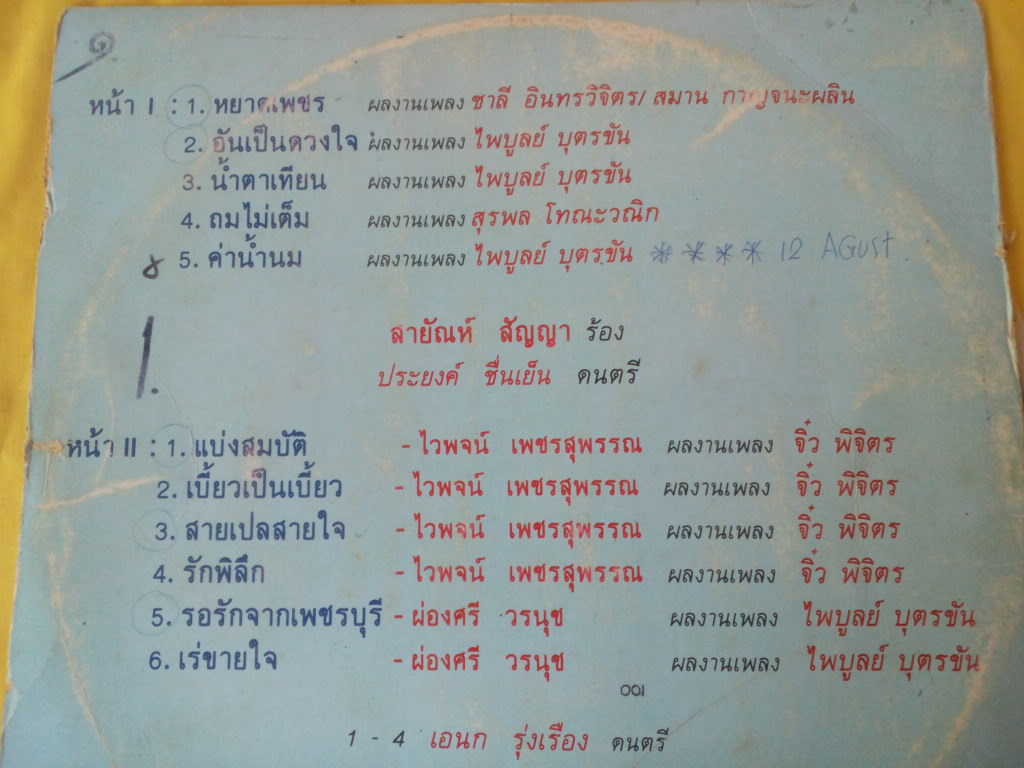 ๑
หน้า I : 1. หยาดเพชร ผลงานเพลง ชาลี อินทรวิจิตร/ สมาน กาญจนะผลิน
2. อันเป็นดวงใจ ผลงานเพลง ไพบูลย์ บุตรขัน
3. น้ำตาเทียน ผลงานเพลง ไพบูลย์ บุตรขัน
4. ถมไม่เต็ม ผลงานเพลง สุรพล โทณะวณิก
5. ค่าน้ำนม ผลงานเพลง ไพบูลย์ บุตรขัน **** 12 AGUST.
1.
สายัณห์ สัญญา ร้อง
ประยงค์ ชื่นเย็น ดนตรี
หน้า II : 1. แบ่งสมบัติ - ไวพจน์ เพชรสุพรรณ ผลงานเพลง จิ๋ว พิจิตร
2. เบี้ยวเป็นเบี้ยว - ไวพจน์ เพชรสุพรรณ ผลงานเพลง จิ๋ว พิจิตร
3. สายเปลสายใจ - ไวพจน์ เพชรสุพรรณ ผลงานเพลง จิ๋ว พิจิตร
4. รักพิลึก - ไวพจน์ เพชรสุพรรณ ผลงานเพลง จิ๋ว พิจิตร
5. รอรักจากเพชรบุรี - ผ่องศรี วรนุช ผลงานเพลง ไพบูลย์ บุตรขัน
6. เร่ขายใจ - ผ่องศรี วรนุช ผลงานเพลง ไพบูลย์ บุตรขัน
001
1 - 4 เอนก รุ่งเรือง ดนตรี